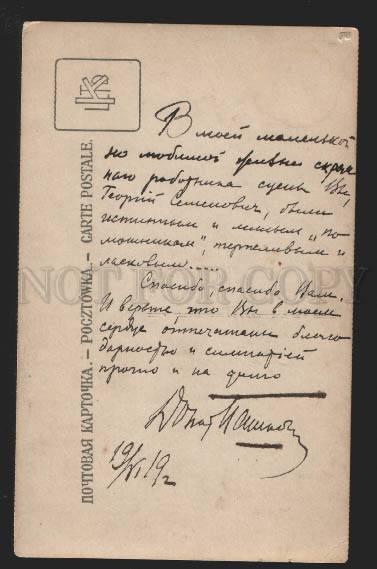 ПОЧТОВАЯ КАРТОЧКА. — POCZTÓWKA. — CARTE POSTALE.
В моей маленькой
но любимой
работника сцены Вы,
Георгий Семенович, были
истинным и милым „по
мошником", терпеливым и
ласковым.....
Спасибо, спасибо Вам.
И верьте, что Вы в моем
сердце отпечатаны благо
дарностью и симпатией
прочно и на долго
19/VI 19 г
NOT FOR COPY